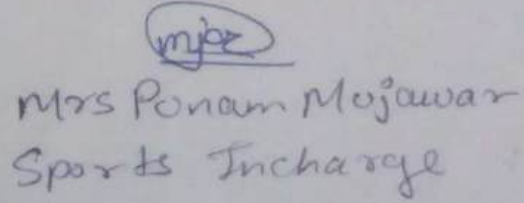 Mrs Ponam Mujawar
Sports Incharge